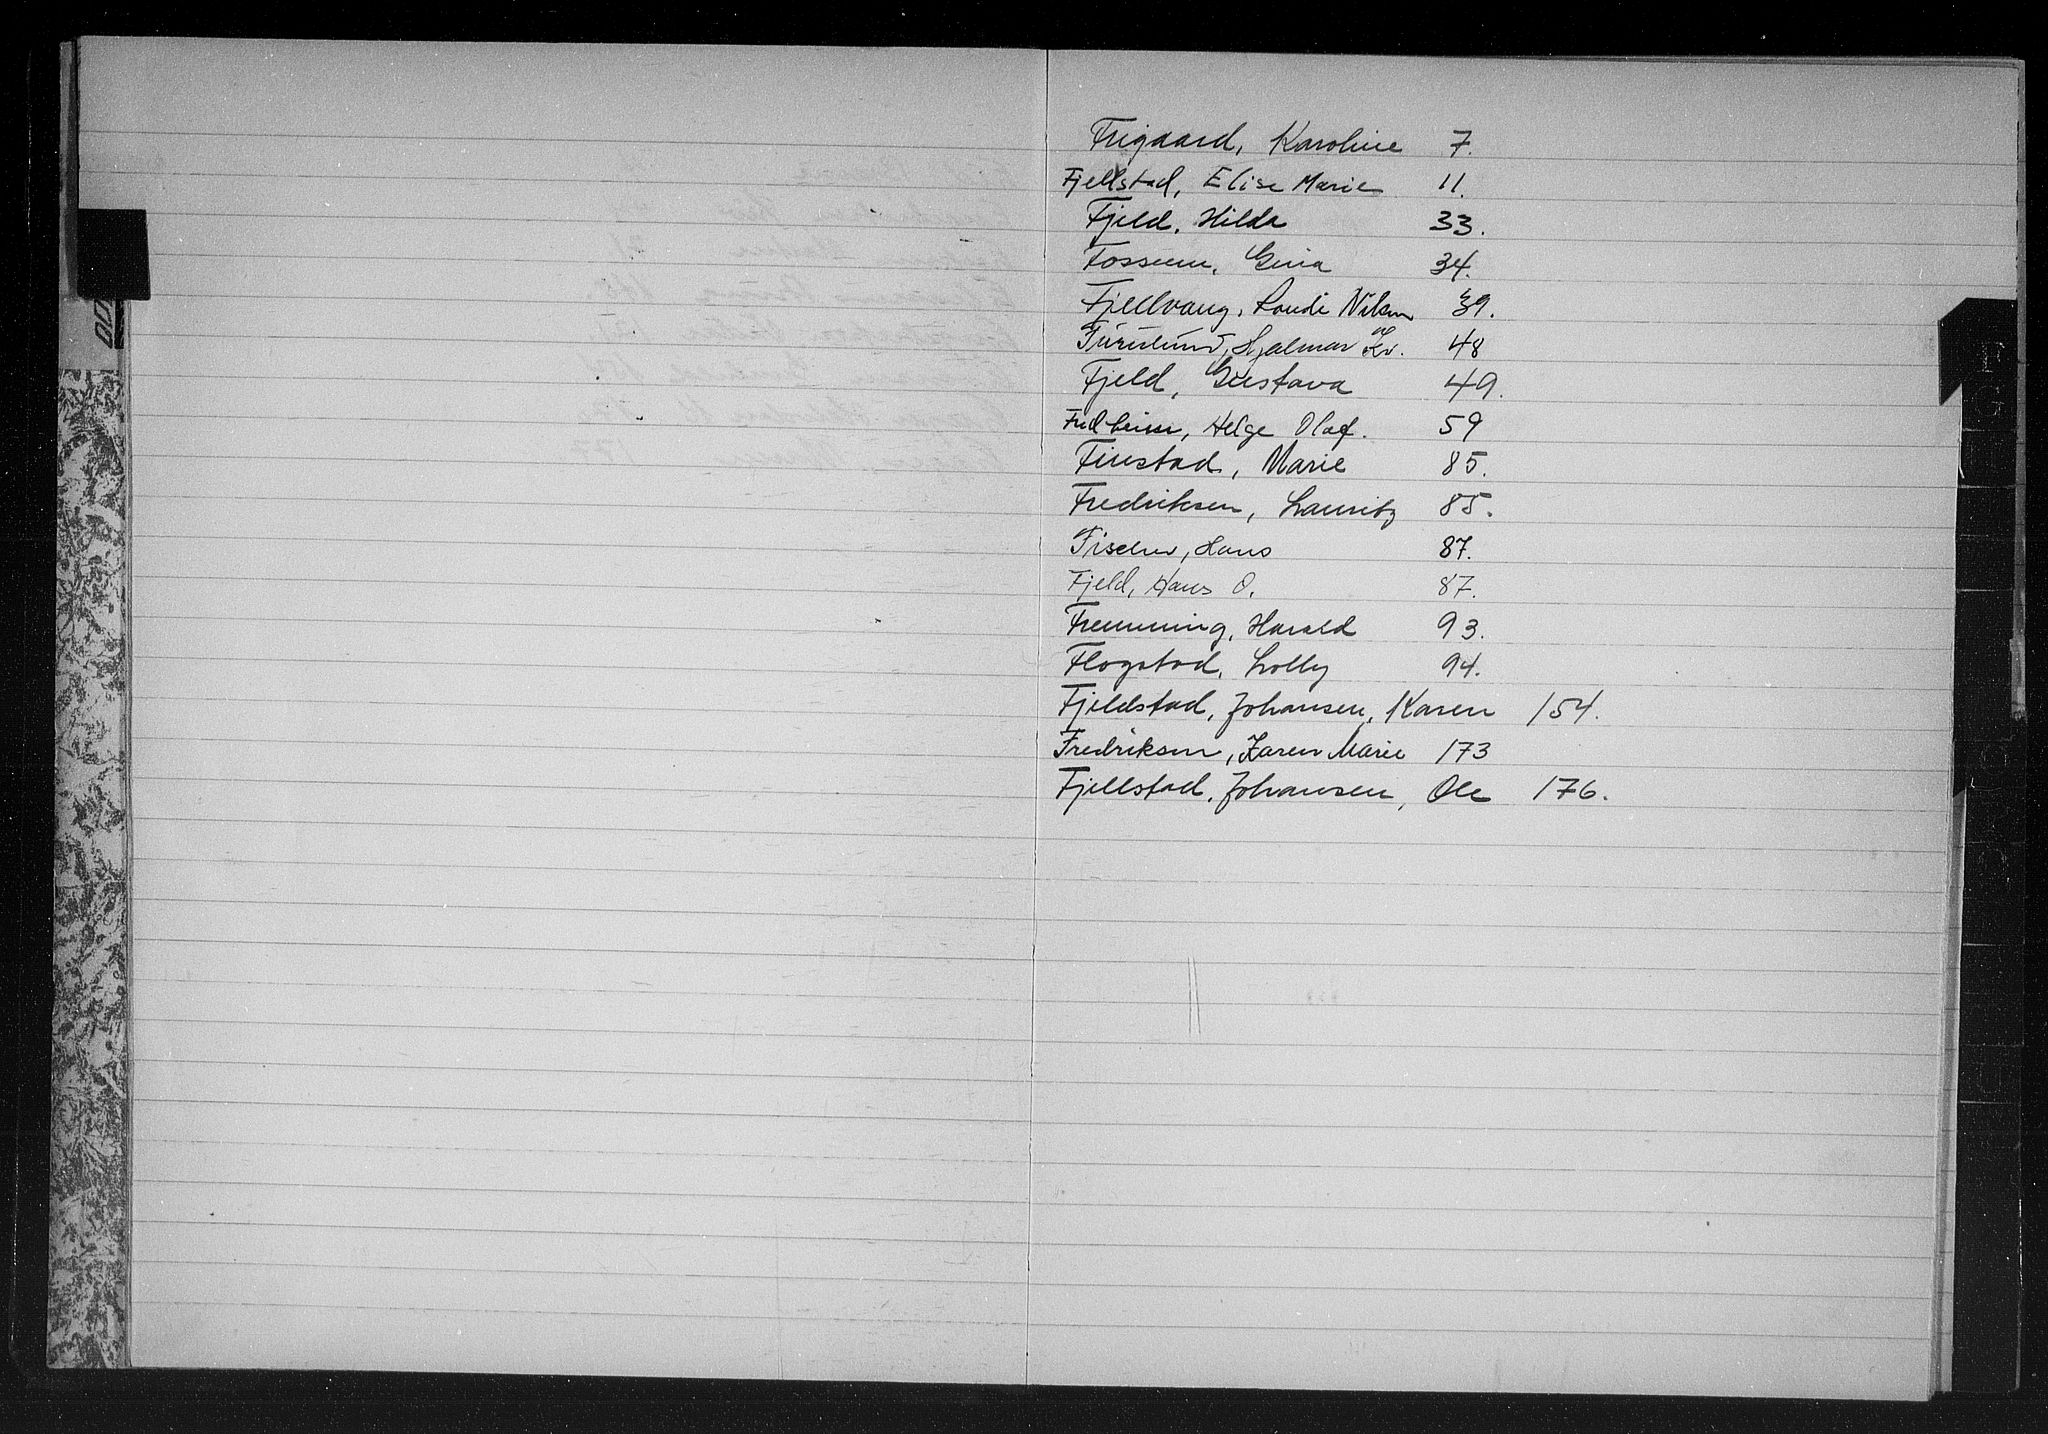 Frigaard, Karoline 7.
Fjellstad, Elise Marie 11.
Fjeld, Hilda 33.
Fossum, Gina 34.
Fjellvang, Randi Nilsen 39.
Furulund, Hjalmar og Kr. 48
Fjeld, Gustava 49.
Fredheim, Helge Olaf. 59
Finstad, Marie 85.
Fredriksen, Lauritz 85.
Fischer, Hans 87.
Fjeld, Hans O. 87.
Fremming, Harald 93.
Flogstad, Lolly 94.
Fjeldstad, Johansen, Karen 154.
Fredriksen, Karen Marie 173
Fjellstad, Johansen, Ole 176.